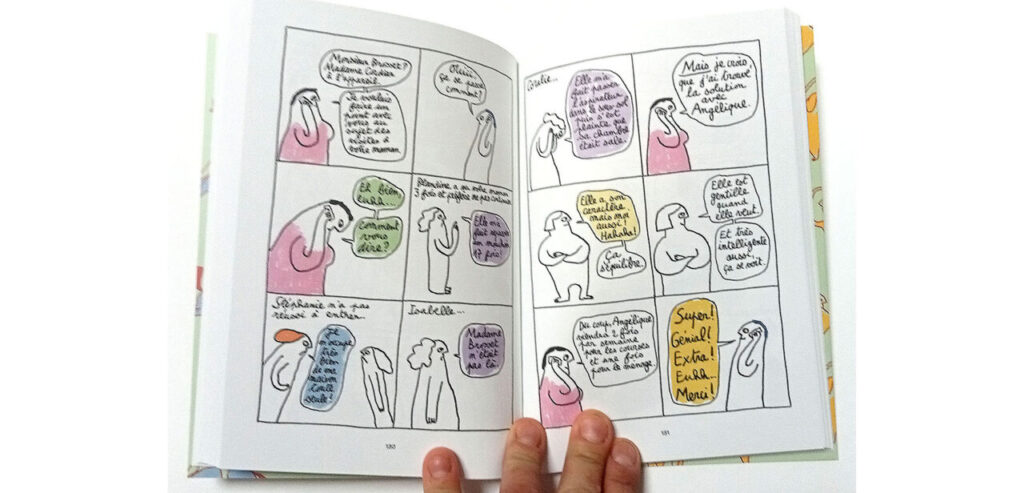 Monsieur Brosset?
Madame Cordier
à l'appareil.
Je voulais
faire un
point avec
vous au
sujet des
visites à
votre maman.
Ouiii,
ça se passe
comment?
Eh bien,
euhh...
comment
vous
dire?
Blandine a vu votre maman
3 fois et préfère ne pas continuer
Elle m'a
fait repasser
un mouchoir
17 fois!
Stéphanie n'a pas
réussi à entrer...
Je
m'occupe
très
bien
de ma
maison
toute
seule!
Isabelle...
Madame
Brosset
n'était
pas là.
120
Coralie...
Elle m'a
fait passer
l'aspirateur
dans le sous-sol
puis s'est
plainte que
sa chambre
était sale.
Mais je crois,
que j'ai trouvé
la solution
avec
Angélique.
Elle a son
caractère
mais moi
aussi!
Hahaha!
Ça
s'équilibre.
Elle est
gentille
quand
elle veut.
Et très
intelligente
aussi,
ça se voit.
Du coup, Angélique
viendra 2 fois
par semaine
pour les courses
et une fois
pour le ménage.
Super!
Génial!
Extra!
Euhh...
Merci!